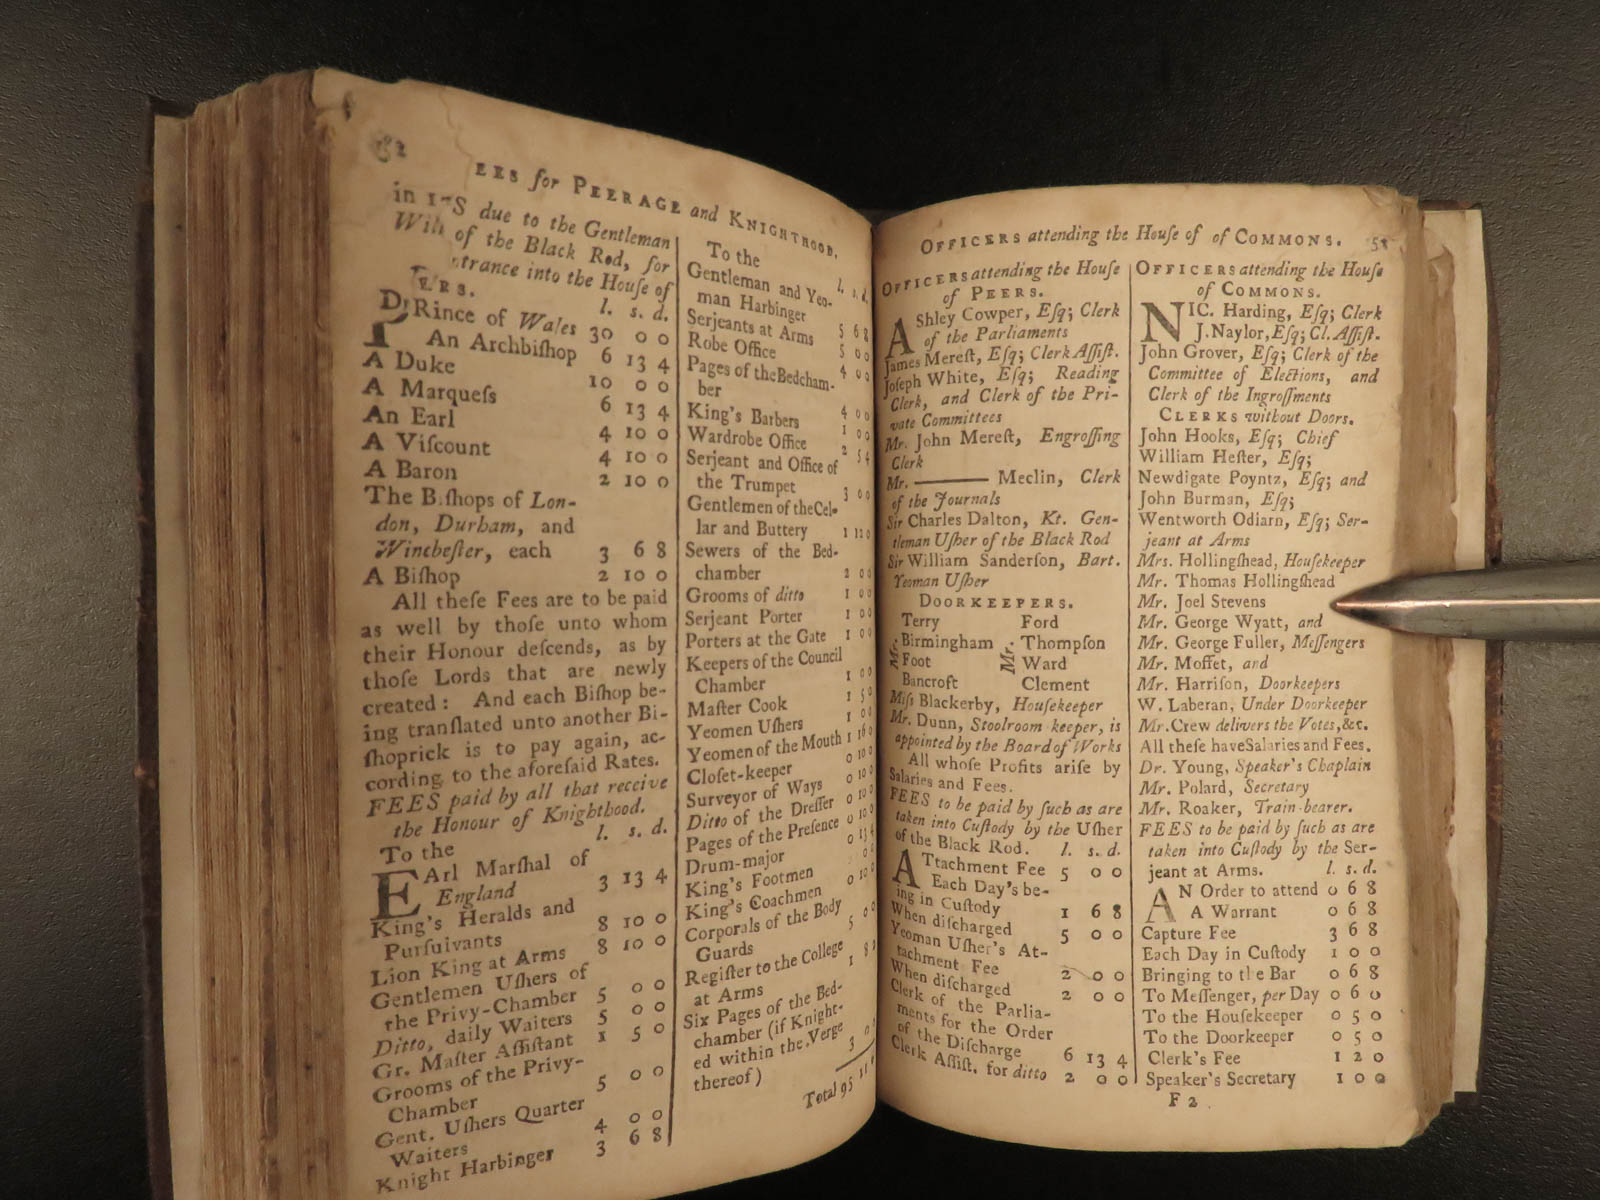 EES for PEERAGE and KNIGHTHOOD.
due to the Gentleman
of the Black Rod, for
trance into the House of
PRince of Wales 30 0 0
l. s. d.
An Archbiſhop 6 13 4
A Duke
A Marqueſs 10 0 0
An Earl 6 13 4
A Viſcount 4 10 0
A Baron 4 10 0
2 10 0
The Biſhops of Lon-
don, Durham, and
Wincheſter, each 3 6 8
A Biſhop 2 10 0
All theſe Fees are to be paid
as well by thoſe unto whom
their Honour deſcends, as by
thoſe Lords that are newly
created: And each Biſhop be-
ing tranſlated unto another Bi-
ſhoprick is to pay again, ac-
cording to the aforeſaid Rates.
FEES paid by all that receive
the Honour of Knighthood.
l. s. d.
To the
EArl Marſhal of
England 3 13 4
King's Heralds and
Purſuivants 8 10 0
Lion King at Arms 8 10 0
Gentlemen Uſhers of
the Privy-Chamber 5 0 0
Ditto, daily Waiters 5 0 0
Gr. Maſter Aſſiſtant 1 5 0
Grooms of the Privy-
Chamber 5 0 0
Gent. Uſhers Quarter
Waiters 4 0 0
Knight Harbinger 3 6 8
To the
l. s. d.
Gentleman and Yeo-
man Harbinger
Serjeants at Arms 5 6 8
Robe Office 5 0 0
Pages of the Bedcham- 4 0 0
ber
King's Barbers 4 0 0
Wardrobe Office 1 0 0
Serjeant and Office of 2 5 4
the Trumpet
Gentlemen of the Cel- 3 0 0
lar and Buttery 1 12 0
Sewers of the Bed-
chamber 2 0 0
Grooms of ditto 1 0 0
Serjeant Porter 1 0 0
Porters at the Gate 1 0 0
Keepers of the Council
Chamber 1 0 0
Maſter Cook 1 5 0
Yeomen Uſhers 1 0 0
Yeomen of the Mouth 1 16 0
Cloſet-keeper 0 10 0
Surveyor of Ways 0 10 0
Ditto of the Dreſſer 0 10 0
Pages of the Preſence 0 10 0
Drum-major 0 13 4
King's Footmen
King's Coachmen 0 10 0
Corporals of the Body
Guards 5 0 0
Regiſter to the College
at Arms 1 8
Six Pages of the Bed-
chamber (if Knight-
ed within the Verge
thereof) 3 0
Total 95
OFFICERS attending the Houſe of of COMMONS.
OFFICERS attending the Houſe
of PEERS.
AShley Cowper, Eſq; Clerk
of the Parliaments
James Mereſt, Eſq; Clerk Aſſiſt.
Joſeph White, Eſq; Reading
Clerk, and Clerk of the Pri-
vate Committees
Mr. John Mereſt, Engroſſing
Clerk
Mr. ——— Meclin, Clerk
of the Journals
Sir Charles Dalton, Kt. Gen-
tleman Uſher of the Black Rod
Sir William Sanderſon, Bart.
Yeoman Uſher
DOORKEEPERS.
Terry Ford
Birmingham Mr. Thompſon
Mr. Foot Ward
Bancroft Clement
Miſs Blackerby, Houſekeeper
Mr. Dunn, Stoolroom-keeper, is
appointed by the Board of Works
All whoſe Profits ariſe by
Salaries and Fees.
FEES to be paid by ſuch as are
taken into Cuſtody by the Uſher
of the Black Rod. l. s. d.
ATtachment Fee 5 0 0
Each Day's be-
ing in Cuſtody 1 6 8
When diſcharged 5 0 0
Yeoman Uſher's At-
tachment Fee 2 0 0
When diſcharged 2 0 0
Clerk of the Parlia-
ments for the Order
of the Diſcharge 6 13 4
Clerk Aſſiſt. for ditto 2 0 0
OFFICERS attending the Houſe
of COMMONS.
NIC. Harding, Eſq; Clerk
J. Naylor, Eſq; Cl. Aſſiſt.
John Grover, Eſq; Clerk of the
Committee of Elections, and
Clerk of the Ingroſſments
CLERKS without Doors.
John Hooks, Eſq; Chief
William Heſter, Eſq;
Newdigate Poyntz, Eſq; and
John Burman, Eſq;
Wentworth Odiarn, Eſq; Ser-
jeant at Arms
Mrs. Hollingſhead, Houſekeeper
Mr. Thomas Hollingſhead
Mr. Joel Stevens
Mr. George Wyatt, and
Mr. George Fuller, Meſſengers
Mr. Moffet, and
Mr. Harriſon, Doorkeepers
W. Laberan, Under Doorkeeper
Mr. Crew delivers the Votes, &c.
All theſe have Salaries and Fees.
Dr. Young, Speaker's Chaplain
Mr. Polard, Secretary
Mr. Roaker, Train-bearer.
FEES to be paid by ſuch as are
taken into Cuſtody by the Ser-
jeant at Arms. l. s. d.
AN Order to attend 0 6 8
A Warrant 0 6 8
Capture Fee 3 6 8
Each Day in Cuſtody 1 0 0
Bringing to the Bar 0 6 8
To Meſſenger, per Day 0 6 0
To the Houſekeeper 0 5 0
To the Doorkeeper 0 5 0
Clerk's Fee 1 2 0
Speaker's Secretary 1 0 0
F 2